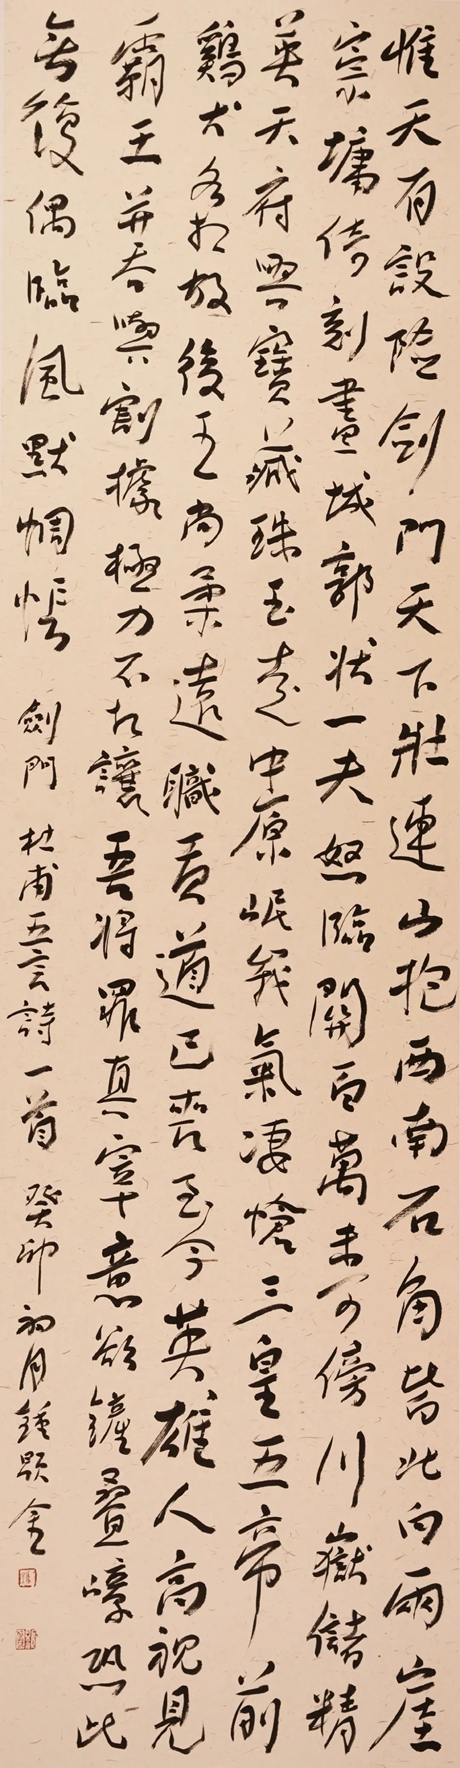 惟天有設險劍門天下壯連山抱西南石角皆北向兩崖
崇墉倚刻畫城郭狀一夫怒臨關百萬未可傍川嶽儲精
英天府興寶藏珠玉走中原岷峨氣淒愴三皇五帝前
鷄犬各相放後王尚柔遠職貢道已喪至今英雄人高視見
霸王并吞與割據極力不相讓吾將罪真宰意欲鏟疊嶂恐此
無復偶臨風默惆悵 劍門 杜甫五言詩一首 癸卯初月鍾顯金